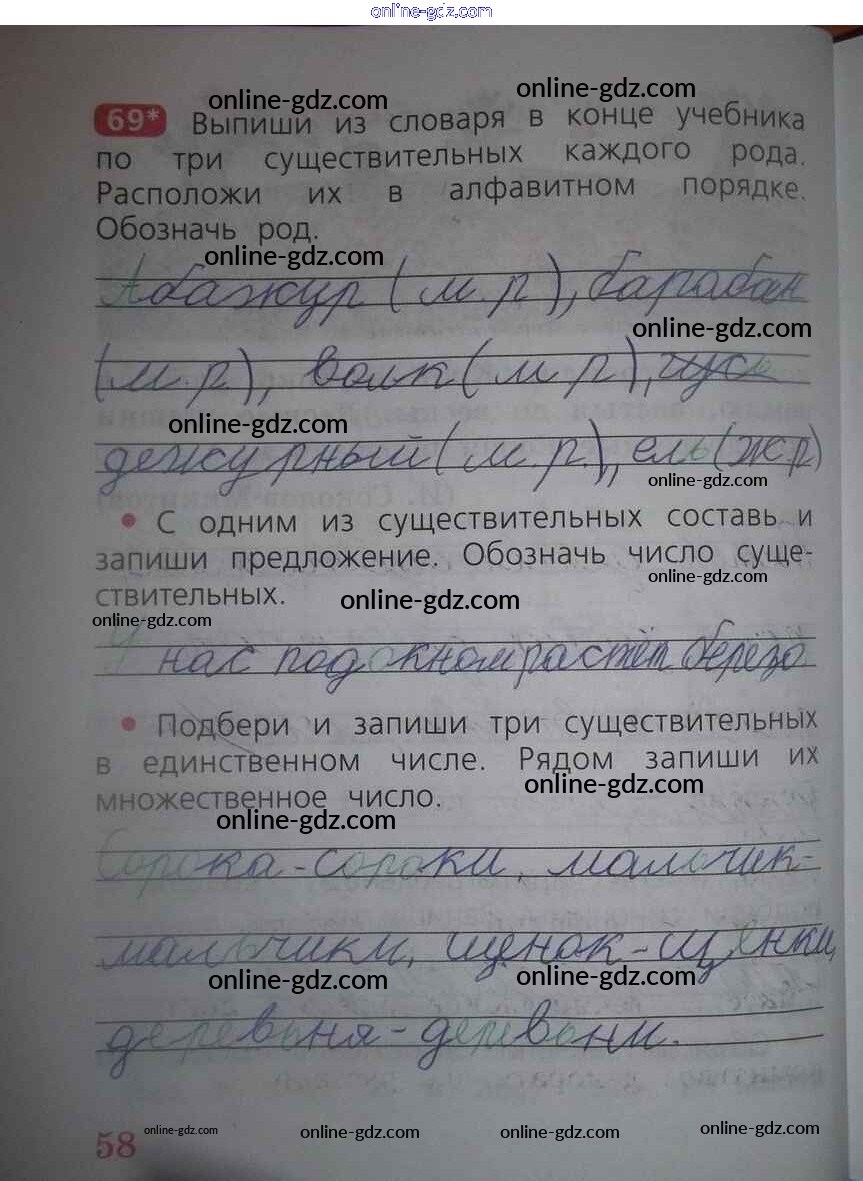 onl!ne-gdz.com
online-gdz.com online-gdz.com
69* Выпиши из словаря в конце учебника
по три существительных каждого рода.
Расположи их в алфавитном порядке.
Обозначь род.
online-gdz.com
Абажур (м.р), барабан
online-gdz.com
(м.р), волк (м р), гусь
online-gdz.com
дежурный (м.р.), ель (ж р)
online-gdz.com
• С одним из существительных составь и
запиши предложение. Обозначь число суще-
online-gdz.com
ствительных.
online-gdz.com
online-gdz.com
У нас под окном растёт берёза
• Подбери и запиши три существительных
в единственном числе. Рядом запиши их
online-gdz.com
множественное число.
online-gdz.com
Сорока - сороки, мальчик-
мальчики, щенок - щенки,
online-gdz.com online-gdz.com
деревьня - деревьни.
58 online-gdz.com online-gdz.com online-gdz.com online-gdz.com